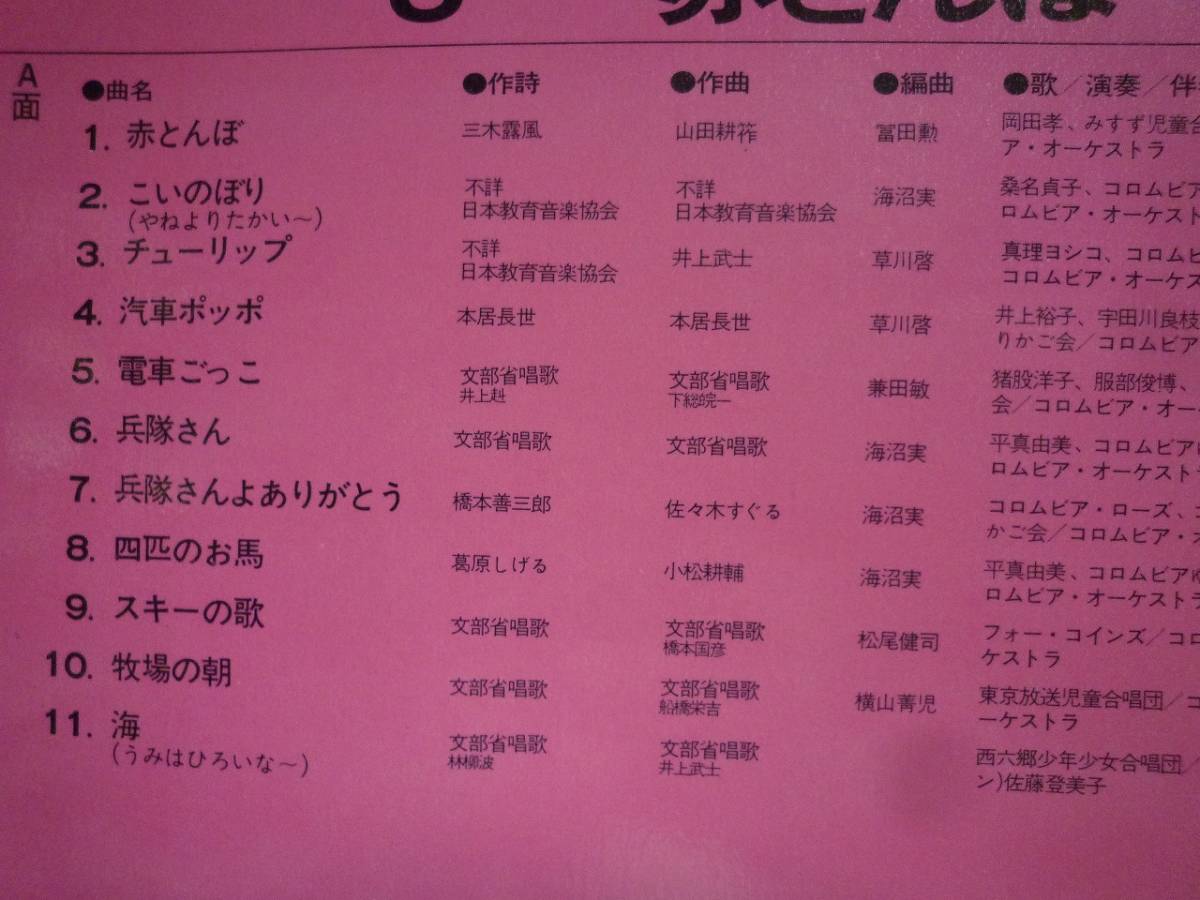 赤とんぼ
A面
●曲名 ●作詩 ●作曲 ●編曲 ●歌／演奏／伴
1. 赤とんぼ 三木露風 山田耕筰 冨田勲 岡田孝、みすず児童合
ア・オーケストラ
2. こいのぼり 不詳 不詳 海沼実 桑名貞子、コロムビア
(やねよりたかい〜) 日本教育音楽協会 日本教育音楽協会 ロムビア・オーケスト
3. チューリップ 不詳 井上武士 草川啓 真理ヨシコ、コロムビ
日本教育音楽協会 コロムビア・オーケス
4. 汽車ポッポ 本居長世 本居長世 草川啓 井上裕子、宇田川良枝
りかご会／コロムビア
5. 電車ごっこ 文部省唱歌 文部省唱歌 兼田敏 猪股洋子、服部俊博、
井上赳 下総皖一 会／コロムビア・オー
6. 兵隊さん 文部省唱歌 文部省唱歌 海沼実 平真由美、コロムビアゆ
ロムビア・オーケスト
7. 兵隊さんよありがとう 橋本善三郎 佐々木すぐる 海沼実 コロムビア・ローズ、
かご会／コロムビア・オ
8. 四匹のお馬 葛原しげる 小松耕輔 海沼実 平真由美、コロムビアゆ
ロムビア・オーケストラ
9. スキーの歌 文部省唱歌 文部省唱歌 松尾健司 フォー・コインズ／コロ
橋本国彦 ケストラ
10. 牧場の朝 文部省唱歌 文部省唱歌 横山菁児 東京放送児童合唱団／コ
船橋栄吉 ーケストラ
11. 海 文部省唱歌 文部省唱歌 西六郷少年少女合唱団／
(うみはひろいな〜) 林柳波 井上武士 ン)佐藤登美子